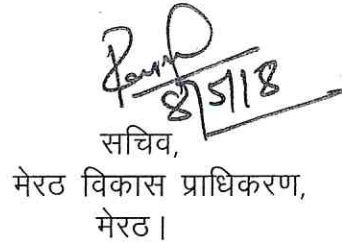 8/5/18
सचिव,
मेरठ विकास प्राधिकरण,
मेरठ।